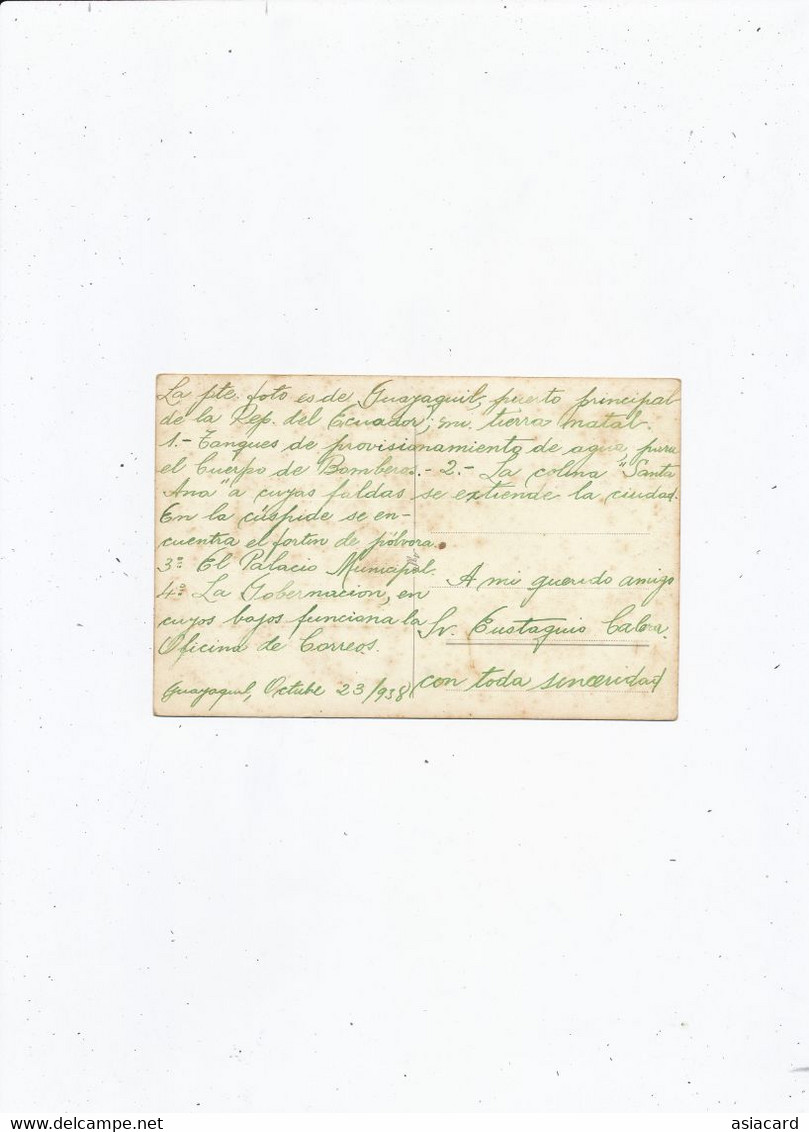 La pte. foto es de Guayaquil, puerto principal
de la Rep. del Ecuador; mi tierra natal.
1.- Tanques de provisionamiento de agua, para
el Cuerpo de Bomberos.- 2.- La colina "Santa
Ana" a cuyas faldas se extiende la ciudad.
En la cúspide se en-
cuentra el fortin de pólvora.
3º El Palacio Municipal.
4º La Gobernacion, en
cuyos bajos funciona la
Oficina de Correos.
Guayaquil, Octubre 23/938
A mi querido amigo
Sr. Eustaquio
con toda sinceridad
www.delcampe.net
asiacard